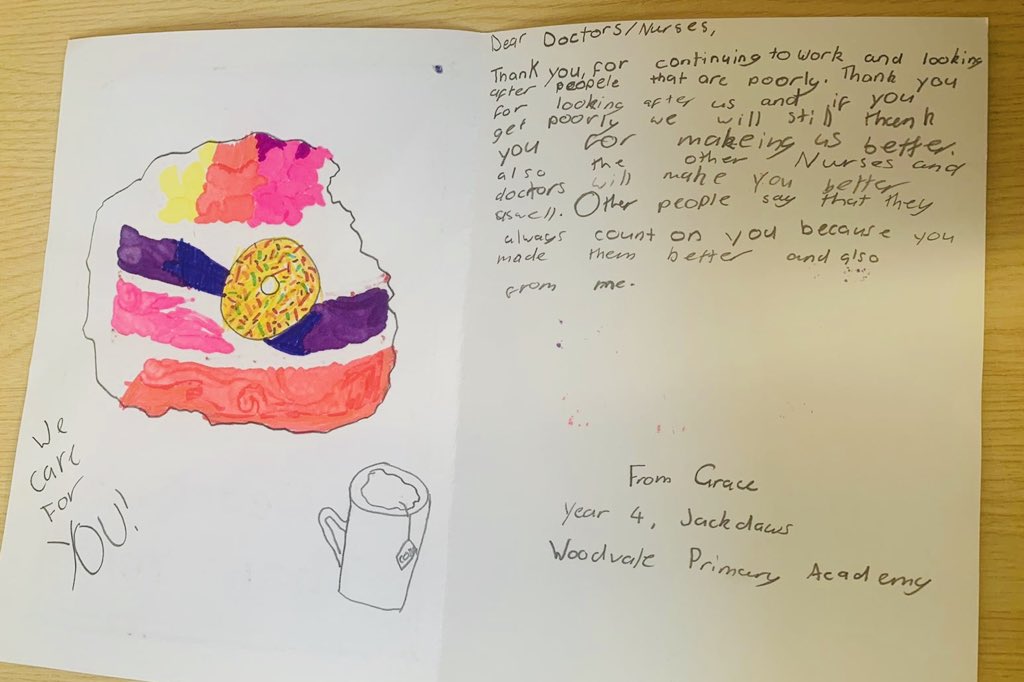 We
care
For
YOU!
Dear Doctors/Nurses,
Thank you, for continuing to work and looking
after peopele that are poorly. Thank you
for looking after us and if you
get poorly we will still thank
you for makeing us better.
also the other Nurses and
doctors will make you better
aswell. Other people say that they
always count on you because you
made them better and also
from me.
From Grace
Year 4, Jackdaws
Woodvale Primary Academy